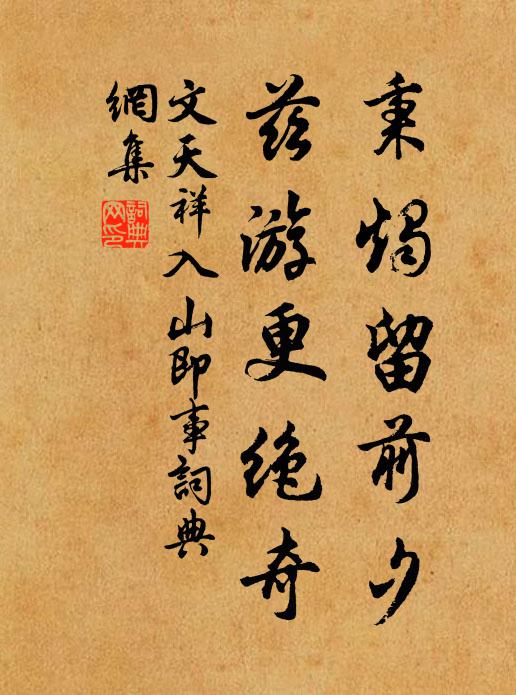 秉燭留前夕
茲游更絶奇
文天祥入山即事詞典
網集
詞典
网印